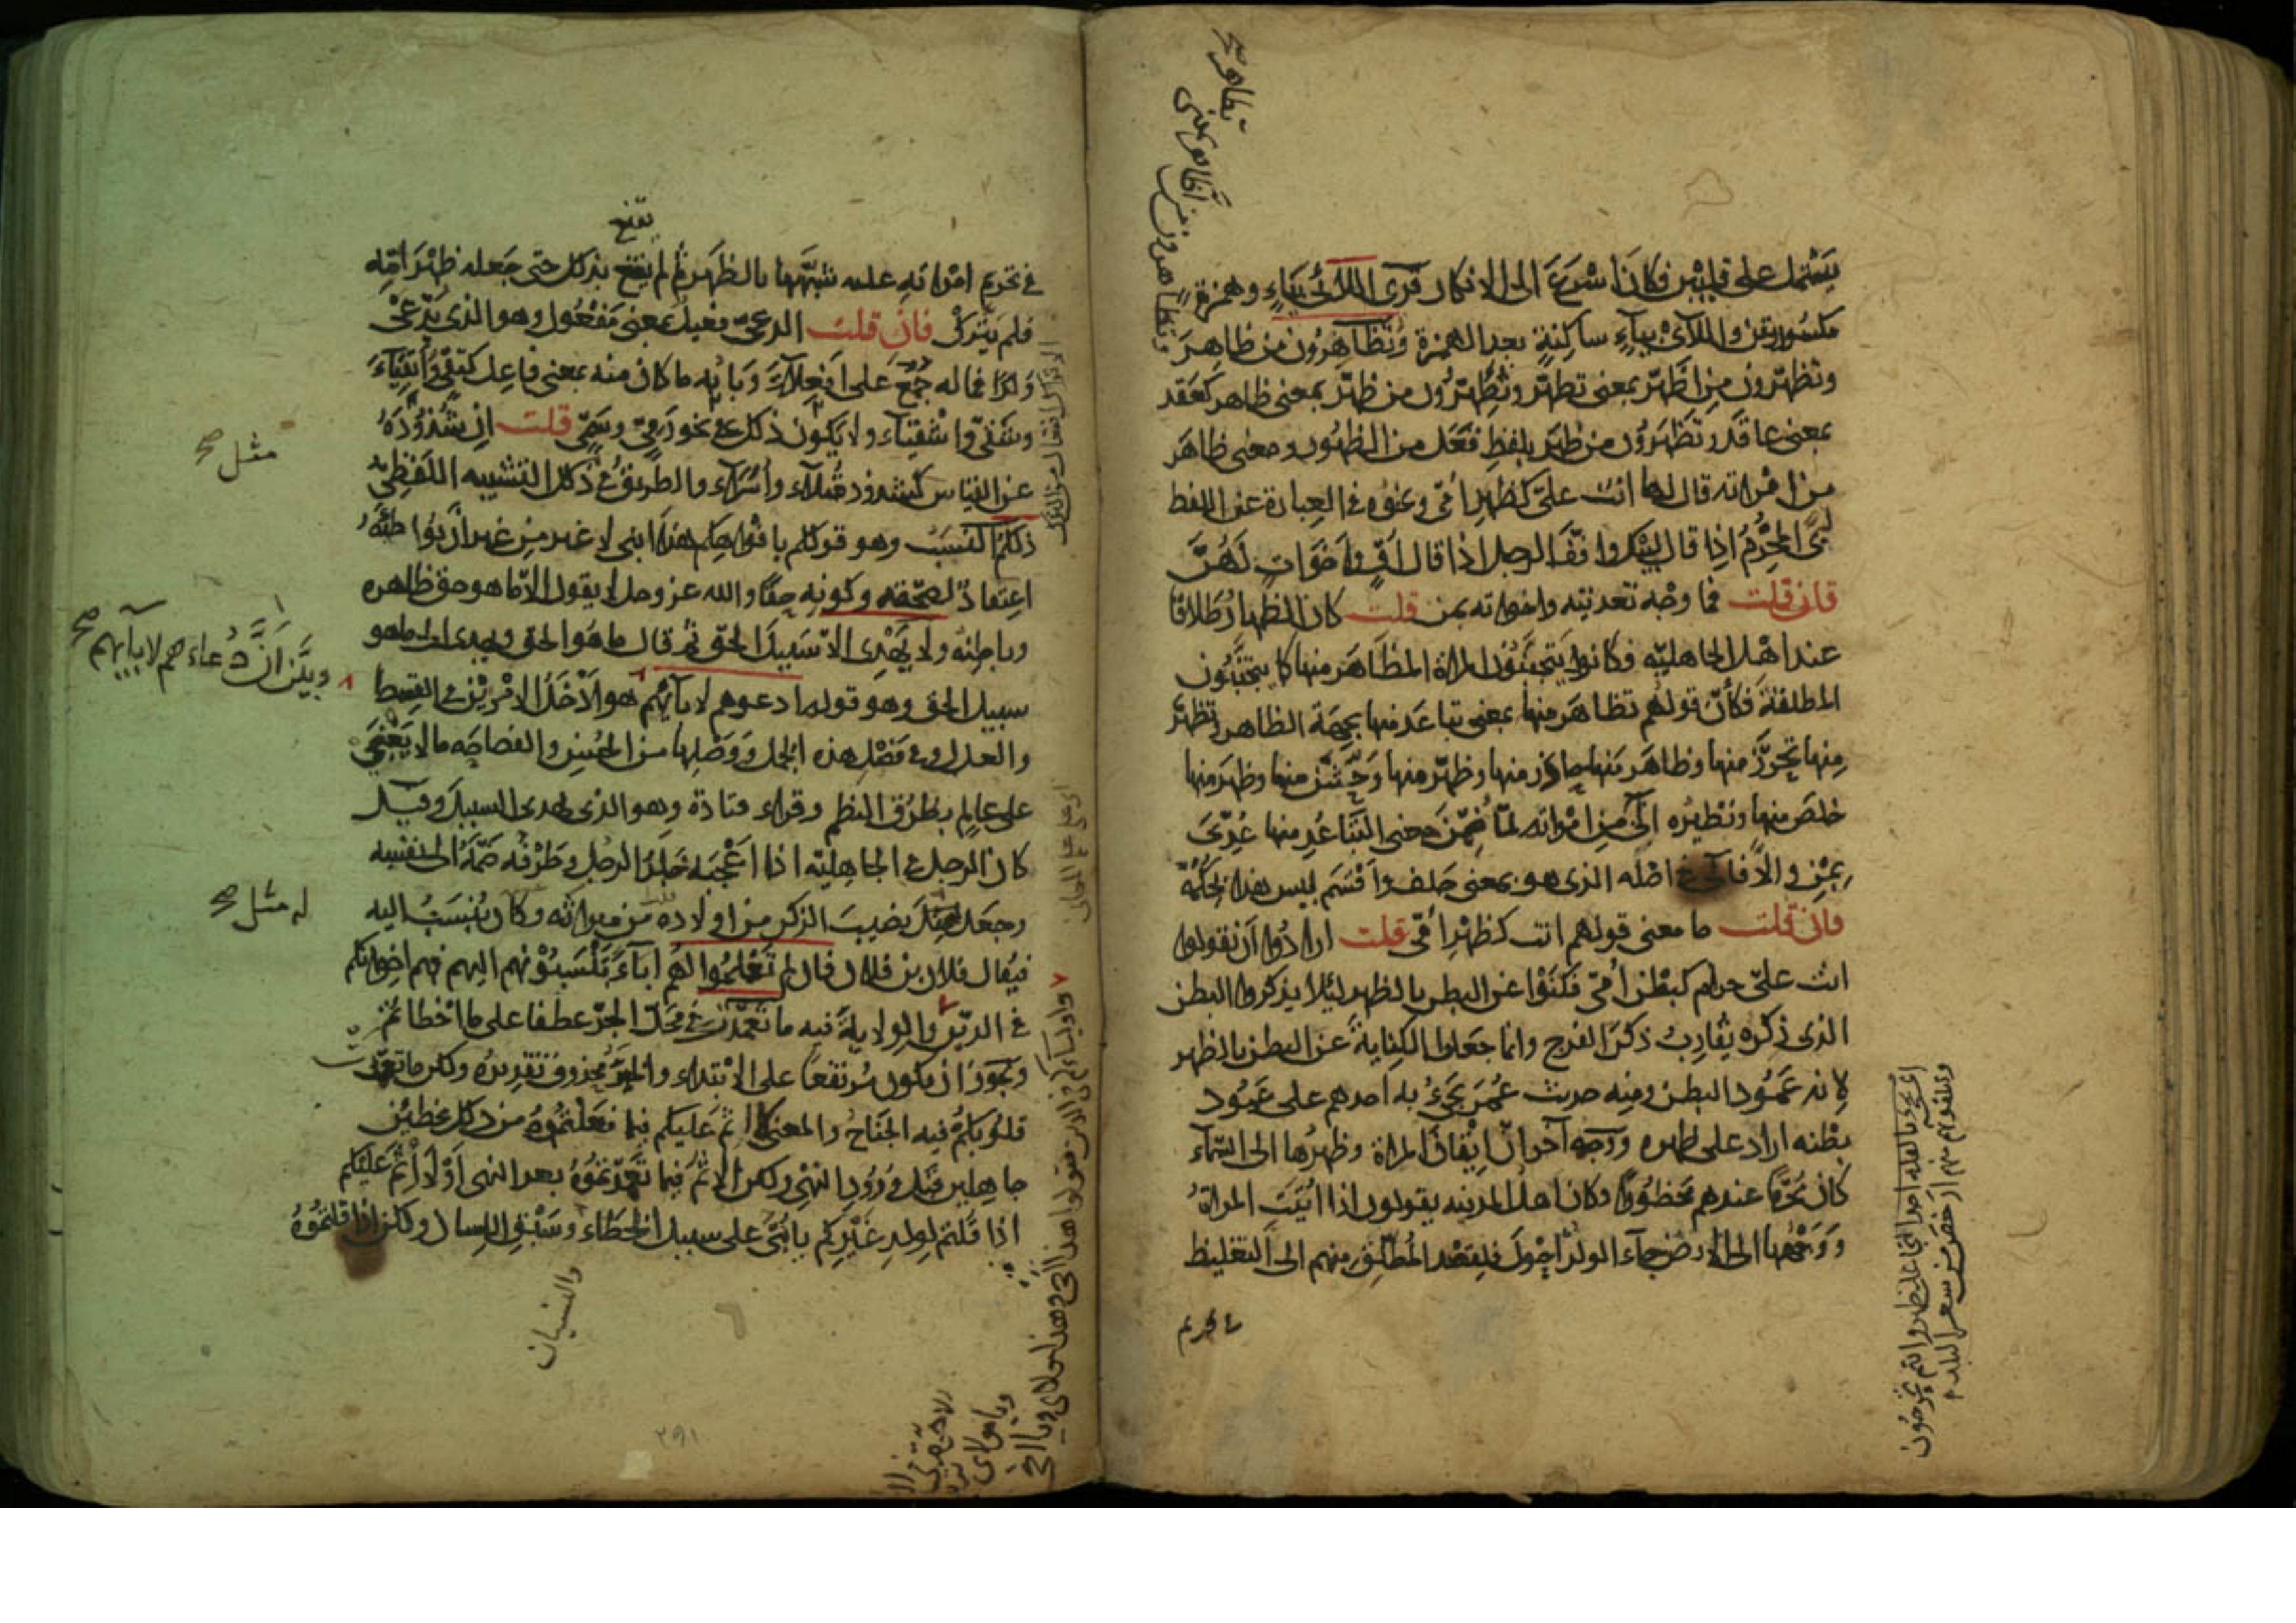 يشتمل على قلبين فكان اسْرَعَ الى الانكار قرئ اللائى بياءٍ وهمزة
مكسورتين واللآىْ بياءٍ ساكنةٍ بعد الهمزة وتُظَاهِرُون من ظاهرَ
وتظهّرون من اظّهّر بمعنى تظهّر وتُظَهِّرُون من ظهّر بمعنى ظاهر كعَقد
بمعنى عاقد وتَظْهَرُون من ظهَر بلفظِ فعَل من الظهُور ومعنى ظاهَر
من امْراته قال لها انت علىّ كظهر امّى ونحوُه فى العِبارة عن اللفظ
لبَّى المحْرِمُ اذا قال لبّيك وافّف الرجل اذا قال اُفٍّ واخوات لَهُنَّ
فان قلت فما وجْه تعديته واخواته بمن قلت كان الظهار طلاقا
عند اهْل الجاهليّه فكانوا يَتجنّبُون المراة المظَاهَر منها كما يتجنّبُون
المطلقة فكأنّ قولهُم تظاهَر منها بمعنى تباعَد منها بجهَة الظاهر وتظهّر
مِنها تحرَّز منها وظاهَر منها حاذر منها وظهّر منها وَحّش منها وظهَر منها
خلصَ منها ونَظيرُه آلَى من امْراته لمّا ضُمّنَ معنى التبَاعُد منها عُدّىَ
بِمِن والّا فآلَى فى اصْله الذى هو بمعنى حلف واَقْسَم ليس هذا بحُكْمه
فان قلت ما معنى قولهم انت كظهْر اُمّى قلت ارادُوا اَن يقولوا
انت علىّ حرام كبَطْن اُمّى فكنَوْا عن البطن بالظهر لئلا يذكروا البطن
الذى ذِكره يُقارِبُ ذكرَ الفرج وانما جعَلوا الكِنايةَ عن البطن بالظهر
لِانه عَمُود البطن ومنه حديث عُمَر يَجىُ به احدهم على عَمُود
بطْنه اراد على ظهره ووجه آخر انّ اِتْيَان المراة وظهرُها الى السّمآء
كان مُحَرَّمًا عندهم مَحْظُورًا وكان اهل المدينه يقولون اذا اُتيَت المراةُ
وَوَجْهُها الى الارض جآء الولدُ اَحْوَلَ فلِقصْد المُطَلِّق منهم الى التغليظ
فى تحريم
فى تحريم امْراته عليه شبّهها بالظهَر ثم لم يقنع بذلك حتى جَعله ظهْر اُمّه
فلم يَتْرك فان قلت الدعىّ فعيل بمعنى مَفْعُول وهو الذى يُدْعَى
وَلدًا فما له جُمِعَ على افْعِلآءَ وَبَابُه ما كان منه بمعنى فاعِل كتَقِىّ واَتقياءَ
وشَقِىّ واشْقِيآء ولا يَكون ذلك فى نحو رَمِىّ وسَمِىّ قلت اِنّ شُذُوذَهُ
عن القياس كشذوذ قُتلآء واُسَرآء والطريقُ فى ذلك التشبيه اللّفظِىّ
ذلكم النَسَب هو قولكم بافواهِكم هذا ابنى لا غير من غير ان يُواطئهُ
اعتقادٌ لصحّته وكونِه حقًّا والله عز وجل لا يقول الّا ما هو حق ظاهره
وباطنُه ولا يَهْدى الّا سَبيلَ الحَق ثم قال ما هُو الحق وهدى الى ما هو
سبيل الحق وهو قوله ادعوهم لابآئهم هو اَدْخَلُ الامْرَيْن فى القِسط
والعدل وفى فَصْل هذه الجُمل وَوَصْلِها من الحُسْنِ والفصاحَه ما لا يَغْبَى
على عالِمٍ بطُرُق النظم وقراء قتادة وهو الذى يهدى السبيل وقيل
كان الرجل فى الجاهليّه اذا اَعْجَبَه جَلدُ الرجل وظَرْفُه ضمّهُ الى نفسِه
وجعل له مثل نصيبَ الذكر من اولاده من ميراثه وكان يُنْسَبُ اليه
فيُقال فلان بن فلان فان لم تَعْلمُوا لهُم ابآءً تَنْسِبُوْنهم اليهم فهم اخوانكم
فى الدين والولايةُ فيه ما تعَمّدَت فى محلّ الجرّ عطفا على ما اَخْطاتم
ويَجُوزُ ان يكون مُرتفعًا على الابْتداء والخبَرُ محذوف تقديرُه ولكن ما تعمّدت
قلوبكُم فيه الجُنَاحُ والمعنى لا اثم عَليكم فيما فَعَلْتمُوهُ من ذلك مخطِئين
جاهِلين قبْل وُرُودِ النهْى ولكن الاثمُ فيما تَعَمّدتمُوُهُ بعد النهى اَوْ لا اثمَ عَليْكم
اذا قُلتم لِولدِ غَيْرِكم يا بُنىّ على سبيل الخطاء وسَبْق اللسان ولكن اذا قلتمُوهُ
يقنع
مثل صح
وبيّن اَنّ دُعاءَهم لابآئهم صح
له مثل صح
والنسيان
٢٩١